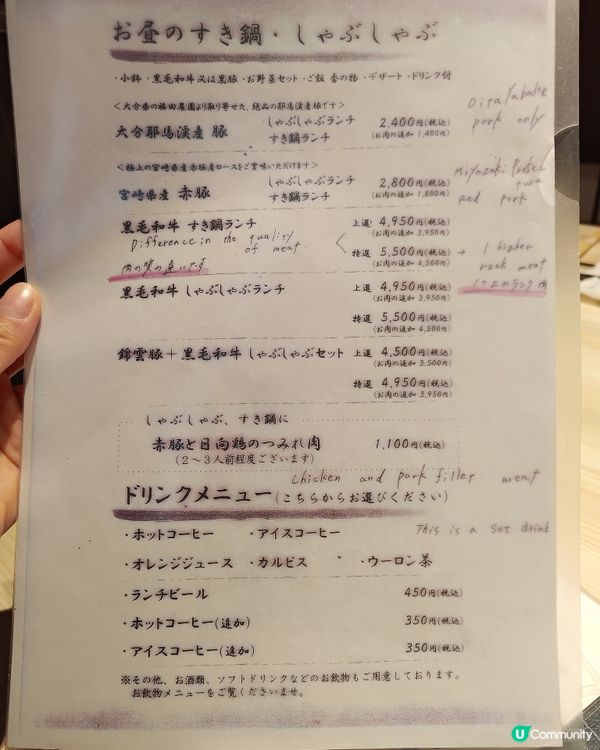 お昼のすき鍋・しゃぶしゃぶ
・小鉢・黒毛和牛又は黒豚・お野菜セット・ご飯 香の物・デザート・ドリンク付
<大分県の福田農園より取り寄せた、絶品の耶馬渓産豚です>
大分耶馬渓産 豚 しゃぶしゃぶランチ 2,400円(税込)
すき鍋ランチ (お肉の追加 1,400円)
pork only
<極上の宮崎県産赤豚肩ロースをご賞味いただけます>
宮崎県産 赤豚 しゃぶしゃぶランチ 2,800円(税込)
すき鍋ランチ (お肉の追加 1,800円)
Miyazaki Prefec
ture
red pork
黒毛和牛 すき鍋ランチ 上選 4,950円(税込)
(お肉の追加 3,950円)
Difference in the quality
of meat.
肉の質の違いです
特選 5,500円(税込)
(お肉の追加 4,500円)
→ 1 higher
rank meat
1つ上のランク肉
黒毛和牛 しゃぶしゃぶランチ 上選 4,950円(税込)
(お肉の追加 3,950円)
特選 5,500円(税込)
(お肉の追加 4,500円)
錦雲豚＋黒毛和牛 しゃぶしゃぶセット 上選 4,500円(税込)
(お肉の追加 3,500円)
特選 4,950円(税込)
(お肉の追加 3,950円)
しゃぶしゃぶ、すき鍋に
赤豚と日向鶏のつみれ肉 1,100円(税込)
(2～3人前程度ございます)
chicken and pork filler meat
ドリンクメニュー(こちらからお選びください)
This is a set drink
・ホットコーヒー ・アイスコーヒー
・オレンジジュース ・カルピス ・ウーロン茶
・ランチビール 450円(税込)
・ホットコーヒー(追加) 350円(税込)
・アイスコーヒー(追加) 350円(税込)
※その他、お酒類、ソフトドリンクなどのお飲物もご用意しております。
お飲物メニューをご覧くださいませ。
U Community